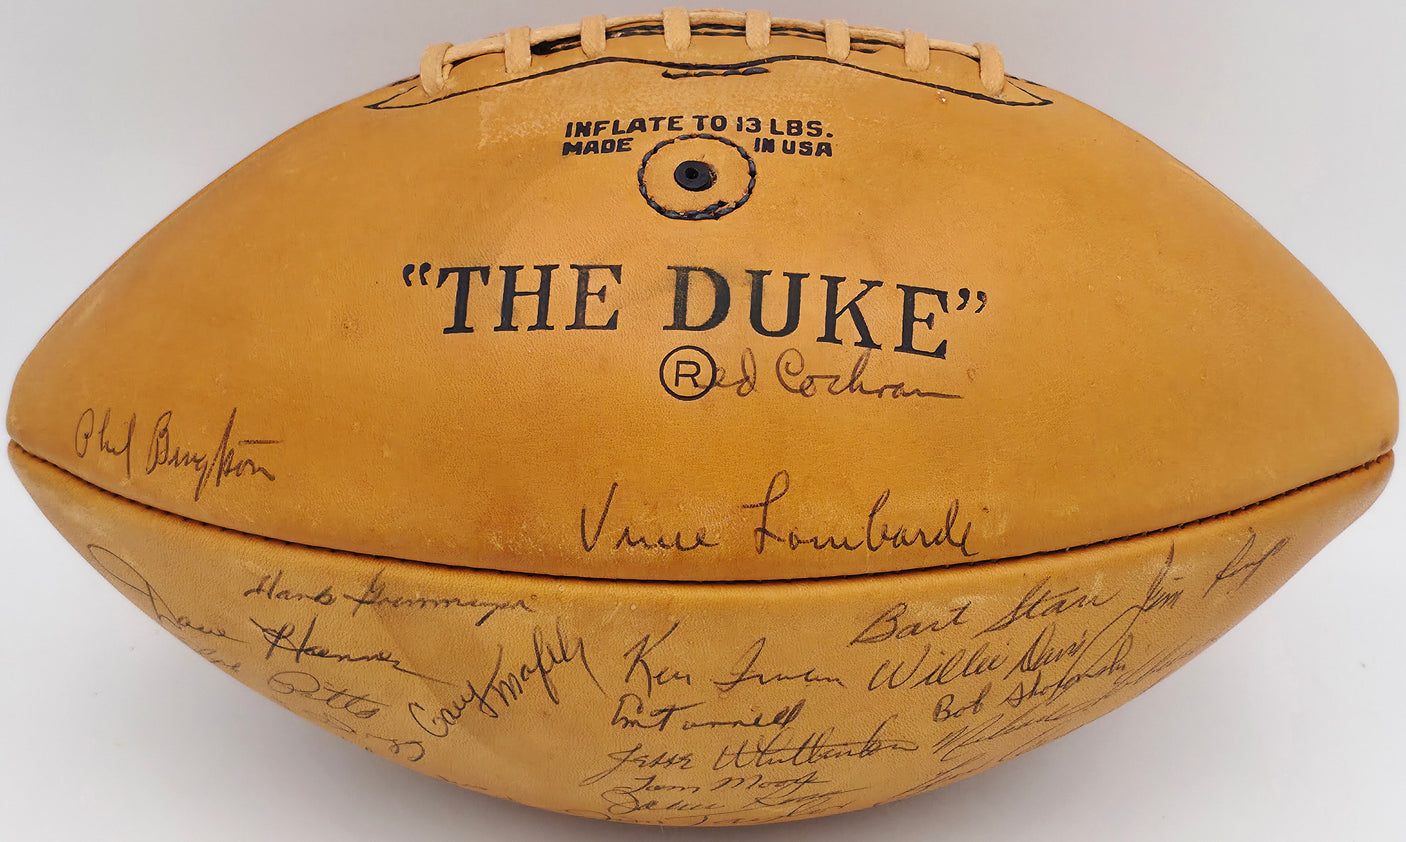 INFLATE TO 13 LBS.
MADE IN USA
"THE DUKE"
®ed Cochran
Phil Bengtson
Vince Lombardi
Hank Gremminger
Dave Hanner
Pitts
Gary Knafelc
Ken Iman
Em Tunnell
Jesse Whittenton
Tom Moore
Bart Starr
Willie Davis
Bob Skoronski
Jim Ringo